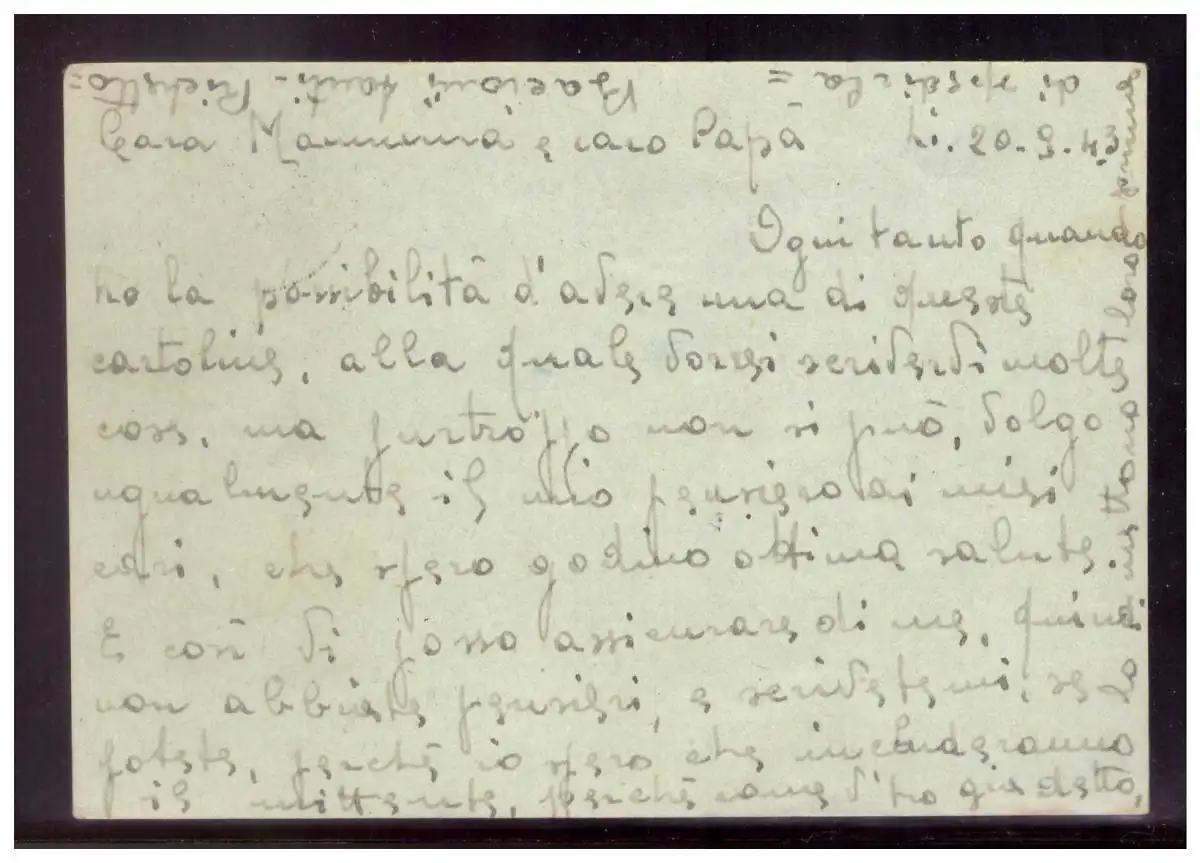 Cara Mammina e caro Papà li. 20-9-43
Ogni tanto quando
ho la possibilità d'avere una di queste
cartoline, alla quale vorrei scrivervi molte
cose, ma purtroppo non si può, volgo
ugualmente il mio pensiero ai miei
cari, che spero godino ottima salute.
E così vi posso assicurare di me, quindi
non abbiate pensieri, e scrivetemi, se
potete, perché io spero che includeranno
il mittente, perché come v'ho già detto,
loro prima
di spedirla =
Bacioni tanti - Richetto =